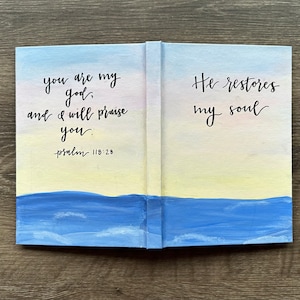 you are my
god,
and I will praise
you.
psalm 118:28
He restores
my soul